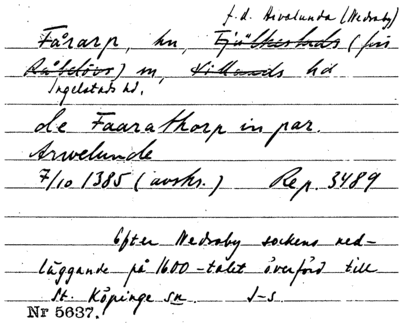 f. d. Arvalunda (Nedraby)
Fårarp, hn, Fjälkestads (förr
Råbelövs) sn, Villands hd
Ingelstads hd.
de Faarathorp in par.
Arwelunde
7/10 1385 (avskr.) Rep. 3489
Efter Nedraby sockens ned-
läggande på 1600-talet överförd till
St. Köpinge sn. J-s
Nr 5637.